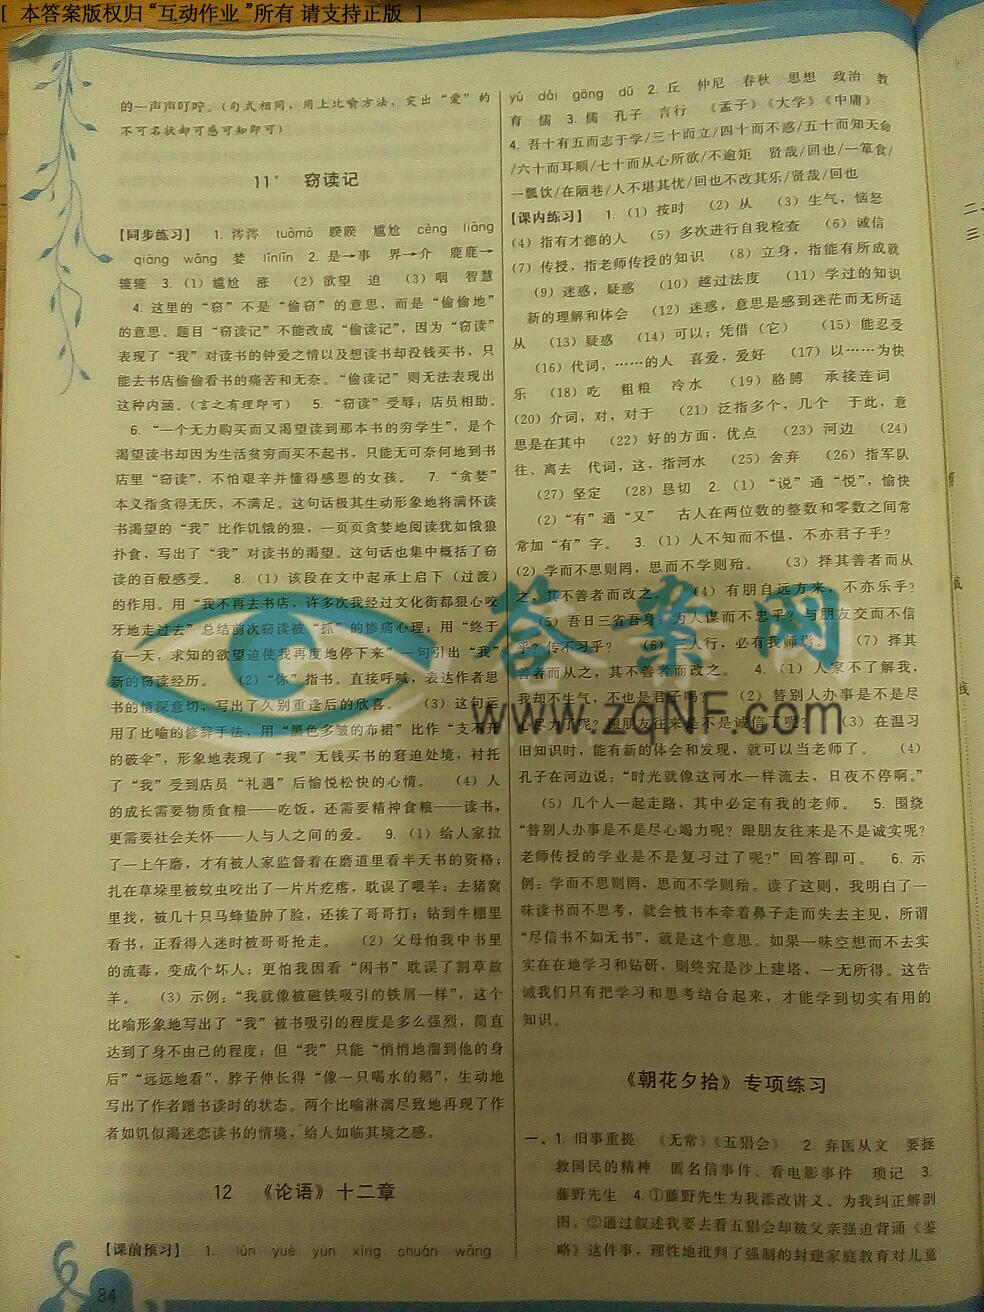 [ 本答案版权归“互动作业”所有 请支持正版 ]
的一声声叮咛。(句式相同，用上比喻方法，突出“爱”的
不可名状却可感可知即可)
11* 窃读记
【同步练习】 1. 滂滂 tuōmō 暌暌 尴尬 cèng liàng
qiàng wǎng 婪 līnlīn 2. 是→事 界→介 鹿鹿→
辘辘 3. (1) 尴尬 涨 (2) 欲望 迫 (3) 咽 智慧
4. 这里的“窃”不是“偷窃”的意思，而是“偷偷地”
的意思。题目“窃读记”不能改成“偷读记”，因为“窃读”
表现了“我”对读书的钟爱之情以及想读书却没钱买书，只
能去书店偷偷看书的痛苦和无奈。“偷读记”则无法表现出
这种内涵。(言之有理即可) 5. “窃读”受辱；店员相助。
6. “一个无力购买而又渴望读到那本书的穷学生”，是个
渴望读书却因为生活贫穷而买不起书，只能无可奈何地到书
店里“窃读”，不怕艰辛并懂得感恩的女孩。 7. “贪婪”
本义指贪得无厌，不满足。这句话极其生动形象地将满怀读
书渴望的“我”比作饥饿的狼，一页页贪婪地阅读犹如饿狼
扑食，写出了“我”对读书的渴望。这句话也集中概括了窃
读的百般感受。 8. (1) 该段在文中起承上启下（过渡）
的作用。用“我不再去书店，许多次我经过文化街都狠心咬
牙地走过去”总结前次窃读被“抓”的惨痛心理；用“终于
有一天，求知的欲望迫使我再度地停下来”一句引出“我”
新的窃读经历。 (2) “你”指书。直接呼喊，表达作者思
书的情深意切，写出了久别重逢后的欣喜。 (3) 这句运
用了比喻的修辞手法，用“黑色多皱的布裙”比作“支不开
的破伞”，形象地表现了“我”无钱买书的窘迫处境，衬托
了“我”受到店员“礼遇”后愉悦松快的心情。 (4) 人
的成长需要物质食粮——吃饭，还需要精神食粮——读书，
更需要社会关怀——人与人之间的爱。 9. (1) 给人家拉
了一上午磨，才有被人家监督着在磨道里看半天书的资格；
扎在草垛里被蚊虫咬出了一片片疙瘩，耽误了喂羊；去猪窝
里找，被几十只马蜂蛰肿了脸，还挨了哥哥打；钻到牛棚里
看书，正看得入迷时被哥哥抢走。 (2) 父母怕我中书里
的流毒，变成个坏人；更怕我因看“闲书”耽误了割草放
羊。 (3) 示例：“我就像被磁铁吸引的铁屑一样”，这个
比喻形象地写出了“我”被书吸引的程度是多么强烈，简直
达到了身不由己的程度；但“我”只能“悄悄地溜到他的身
后”“远远地看”，脖子伸长得“像一只喝水的鹅”，生动地
写出了作者蹭书读时的状态。两个比喻淋漓尽致地再现了作
者如饥似渴迷恋读书的情境，给人如临其境之感。
12 《论语》十二章
【课前预习】 1. lún yuè yùn xǐng chuán wǎng
84
yú dài gōng dǔ 2. 丘 仲尼 春秋 思想 政治 教
育 儒 3. 儒 孔子 言行 《孟子》《大学》《中庸》
4. 吾十有五而志于学/三十而立/四十而不惑/五十而知天命
/六十而耳顺/七十而从心所欲/不逾矩 贤哉/回也/一箪食/
一瓢饮/在陋巷/人不堪其忧/回也不改其乐/贤哉/回也
【课内练习】 1. (1) 按时 (2) 从 (3) 生气，恼怒
(4) 指有才德的人 (5) 多次进行自我检查 (6) 诚信
(7) 传授，指老师传授的知识 (8) 立身，指能有所成就
(9) 迷惑，疑惑 (10) 越过法度 (11) 学过的知识
新的理解和体会 (12) 迷惑，意思是感到迷茫而无所适
从 (13) 疑惑 (14) 可以；凭借（它） (15) 能忍受
(16) 代词，……的人 喜爱，爱好 (17) 以……为快
乐 (18) 吃 粗粮 冷水 (19) 胳膊 承接连词
(20) 介词，对，对于 (21) 泛指多个，几个 于此，意
思是在其中 (22) 好的方面，优点 (23) 河边 (24)
往、离去 代词，这，指河水 (25) 舍弃 (26) 指军队
(27) 坚定 (28) 恳切 2. (1) “说”通“悦”，愉快
(2) “有”通“又” 古人在两位数的整数和零数之间常
常加“有”字。 3. (1) 人不知而不愠，不亦君子乎？
(2) 学而不思则罔，思而不学则殆。 (3) 择其善者而从
之，其不善者而改之。 (4) 有朋自远方来，不亦乐乎？
(5) 吾日三省吾身：为人谋而不忠乎？与朋友交而不信
乎？传不习乎？ (6) 三人行，必有我师焉。 (7) 择其
善者而从之，其不善者而改之。 4. (1) 人家不了解我，
我却不生气，不也是君子吗？ (2) 替别人办事是不是尽
心尽力了呢？跟朋友往来是不是诚信了呢？ (3) 在温习
旧知识时，能有新的体会和发现，就可以当老师了。 (4)
孔子在河边说：“时光就像这河水一样流去，日夜不停啊。”
(5) 几个人一起走路，其中必定有我的老师。 5. 围绕
“替别人办事是不是尽心竭力呢？跟朋友往来是不是诚实呢？
老师传授的学业是不是复习过了呢？”回答即可。 6. 示
例：学而不思则罔，思而不学则殆。读了这则，我明白了一
味读书而不思考，就会被书本牵着鼻子走而失去主见，所谓
“尽信书不如无书”，就是这个意思。如果一味空想而不去实
实在在地学习和钻研，则终究是沙上建塔，一无所得。这告
诫我们只有把学习和思考结合起来，才能学到切实有用的
知识。
《朝花夕拾》专项练习
一、1. 旧事重提 《无常》《五猖会》 2. 弃医从文 要拯
救国民的精神 匿名信事件、看电影事件 项记 3.
藤野先生 4. ①藤野先生为我添改讲义、为我纠正解剖
图。②通过叙述我要去看五猖会却被父亲强迫背诵《鉴
略》这件事，理性地批判了强制的封建家庭教育对儿童
二、
三
线
答案网
www.zqNF.com